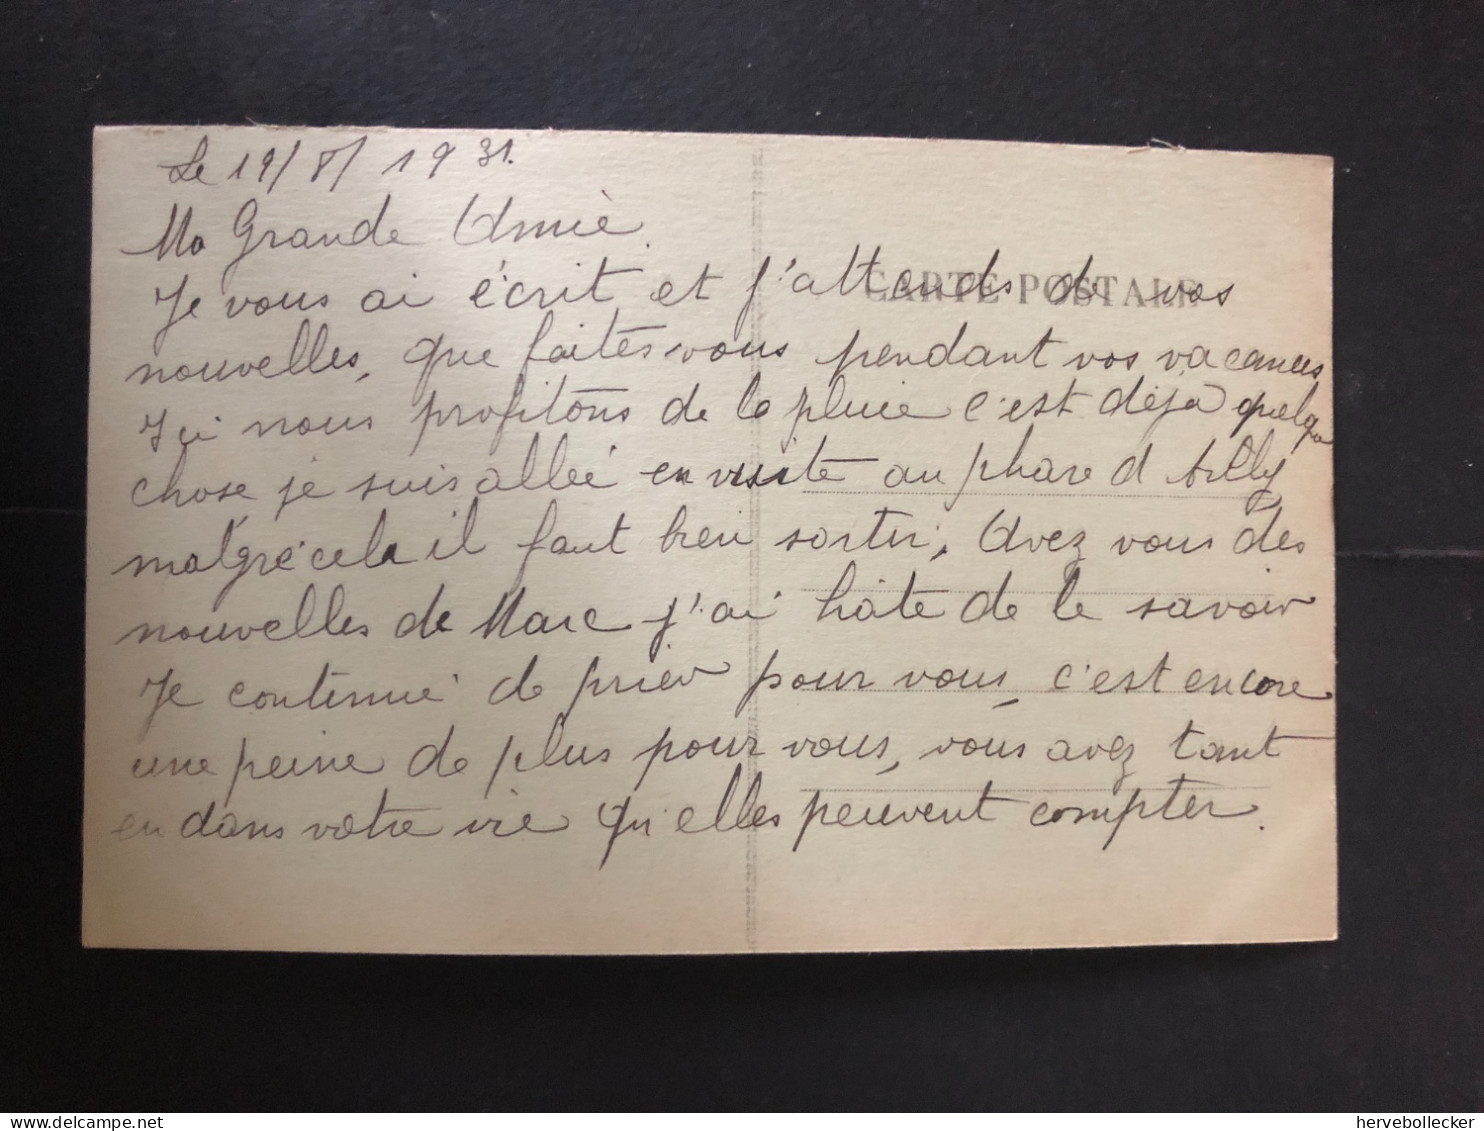 Le 19/8/1931.
Ma Grande Amie.
CARTE POSTALE
Je vous ai écrit et j'attends de vos
nouvelles, que faites vous pendant vos vacances
Ici nous profitons de la pluie c'est déjà quelque
chose je suis allée en visite au phare d Ailly
malgré cela il faut bien sortir, Avez vous des
nouvelles de Marc j'ai hâte de le savoir
Je continue de prier pour vous, c'est encore
une peine de plus pour vous, vous avez tant
eu dans votre vie qu'elles peuvent compter.
hervebollecker